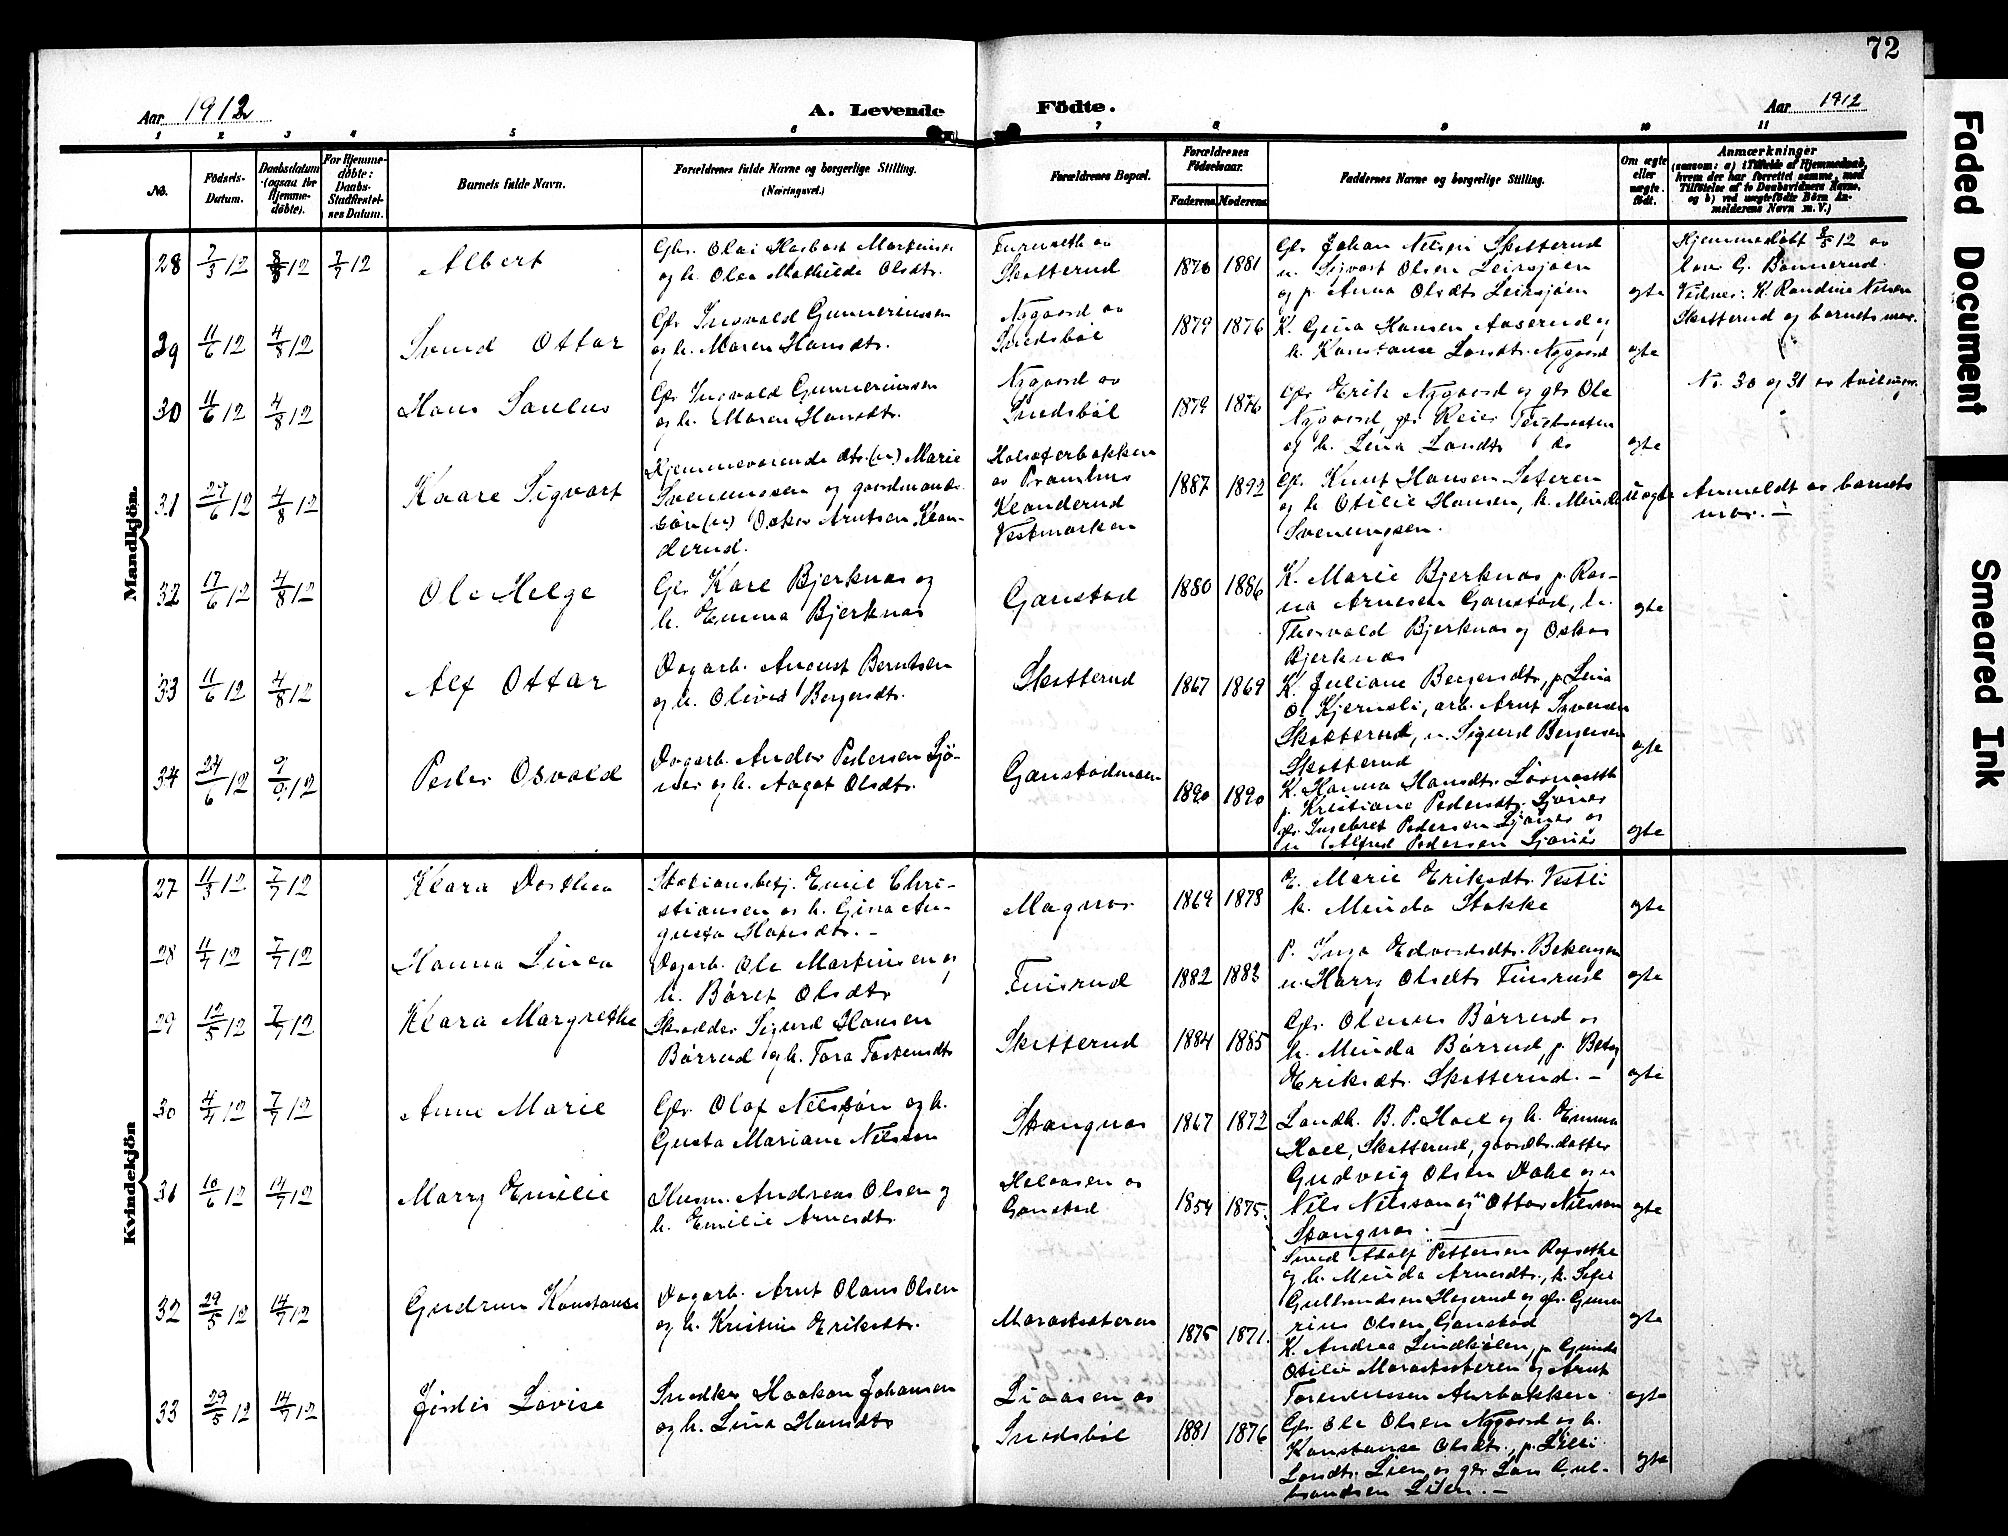 72
Aar 1912
A. Levende
Födte.
Aar 1912
1 2 3 4 5 6 7 8 9 10 11
No.
Födsels-
Datum.
Daabsdatum
(ogsaa for
Hjemme-
döbte).
For Hjemme-
döbte:
Daabs-
Stadfæstel-
ses Datum.
Barnets fulde Navn.
Forældrenes fulde Navne og borgerlige Stilling.
(Næringsvei.)
Forældrenes Bopæl.
Forældrenes
Födselsaar.
Faderens. Moderens.
Faddernes Navne og borgerlige Stilling.
Om ægte
eller
uægte
födt.
Anmærkninger
(saasom: a) i Tilfælde af Hjemmedaab,
hvem der har forrettet samme, med
Tilföielse af to Daabsvidners Navne,
og b) ved uægtefödte Börn An-
melderens Navn m. V.)
Mandkjön.
28 7/3 12 8/5 12 7/7 12 Albert
og h. Olea Mathilde Olsdtr.
Skotterud
1876 1881
Gbr. Johan Nilsen Skotterud
u. Sigvart Olsen Leirsjöen
og p. Anna Olsdtr Leirsjöen
ægte
Hjemmedöbt 8/5 12 av
G. Bönnerud.
Vidner: K. Randine Nilsen
Skotterud og barnets mor.
29 11/6 12 4/8 12 Svend Ottar
Gbr. Ingvald Gunneriussen
og h. Maren Hansdtr.
Nygaard av
Snedsböl
1879 1876
K. Gina Hansen Aaserud og
h. Konstanse Larsdtr. Nygaard
ægte
30 11/6 12 4/8 12 Hans Paulus
Gbr. Ingvald Gunneriussen
og h. Maren Hansdtr.
Nygaard av
Snedsböl
1879 1876
Gbr. Erik Nygaard og gbr Ole
Nygaard, gbr Reier
og h. Lina Larsdtr do
ægte
No. 30 og 31 er tvillinger.
31 27/6 12 4/8 12 Kaare Sigvart
Hjemmeværende dtr. (u) Marie
Svenungsen og gaardmands-
sön (u) Oskar Arntsen Klan-
derud.
Holsæterbakken
av Pramhus
Klanderud
Vestmarken
1887 1892
Gbr. Knut Hansen Sæteren
og h Otilie Hansen, h. Minda
Svenungsen.
uægte
Anmeldt av barnets
mor. –
32 17/6 12 4/8 12 Ole Helge
Gbr. Karl Bjerknæs og
h. Emma Bjerknæs
Gaustad
1880 1886
K. Marie Bjerknæs p. Rag-
na Arnesen Gaustad, u.
Thorvald Bjerknæs og Oskar
Bjerknæs
ægte
33 11/6 12 4/8 12 Alf Ottar
Dagarb. August Berntsen
og h. Olivia Bergersdtr.
Skotterud
1867 1869
K. Juliane Bergersdtr, p. Lina
O. Kjernsli, arb. Arnt Syversen
Skotterud, u. Sigurd Bergersen
Skotterud
ægte
34 24/6 12 9/9 12 Peder Osvald
Dagarb. Anders Pedersen Sjö-
næs og h. Aagot Olsdtr.
Gaustadmoen
1890 1890
K. Hanna Hansdtr.
p. Kristiane Pedersdtr. Sjönes
gbr. Ingebret Pedersen Sjönes og
u Alfred Pedersen Sjönes
ægte
Kvindekjön
27 11/3 12 7/7 12 Klara Dorthea
Stationsbetj. Emil Chri-
stiansen og h. Gina Au-
gusta
Magnor
1869 1873
E. Marie Eriksdtr. Vestli
h. Minda Stokke
ægte
28 11/4 12 7/7 12 Hanna Linea
Dagarb. Ole Martinsen og
h. Böret Olsdtr
Finsrud
1882 1883
P. Inga Edvardsdtr.
u. Harry Olsdtr Finsrud
ægte
29 12/5 12 7/7 12 Klara Margrethe
Skrædder Sigurd Hansen
Börrud og h. Tora Torkensdtr
Skotterud
1884 1885
Gbr. Olenus Börrud og
h. Minda Börrud, p. Betsy
Eriksdtr. Skotterud. –
ægte
30 4/4 12 7/7 12 Anne Marie
Gbr. Olof Nilssön og h.
Gusta Mariane Nilsson
Stangnæs
1867 1872
Landh. B. P. Hoel og h. Emma
Hoel, Skotterud, gaardbr. datter
Gudveig Olsen Dahl og u
Nils Nilsson og Ottar Nilsson
Stangnæs.
ægte
31 10/6 12 14/7 12 Marry Emilie
Husm. Andreas Olsen og
h. Emilie Arnesdtr.
Holaasen av
Gaustad
1854 1875.
Smed Adolf Pettersen
og h. Minda Arnesdtr, k. Sofie
Gulbrandsen Haserud og gbr. Gunne
rius Olsen Gaustad
ægte
32 29/5 12 14/7 12 Gudrun Konstanse
Dagarb. Arnt Olaus Olsen
og h. Kristine Eriksdtr.
Morastsæteren
1875 1871.
K. Andrea Lindkölen, p. Gunda
Otilie Morastsæteren og Arnt
Aurbakken
ægte
33 29/5 12 14/7 12 Jördis Lovise
Snedker Haakon Johansen
og h. Lina Hansdtr
Liaasen av
Snedsböl
1881 1876
Gbr. Ole Olsen Nygaard og h.
Konstanse Olsdtr., p. Lilli
Larsdtr. Lien og gbr Lars Gul-
brandsen Lien. –
ægte
Faded Document
Smeared Ink